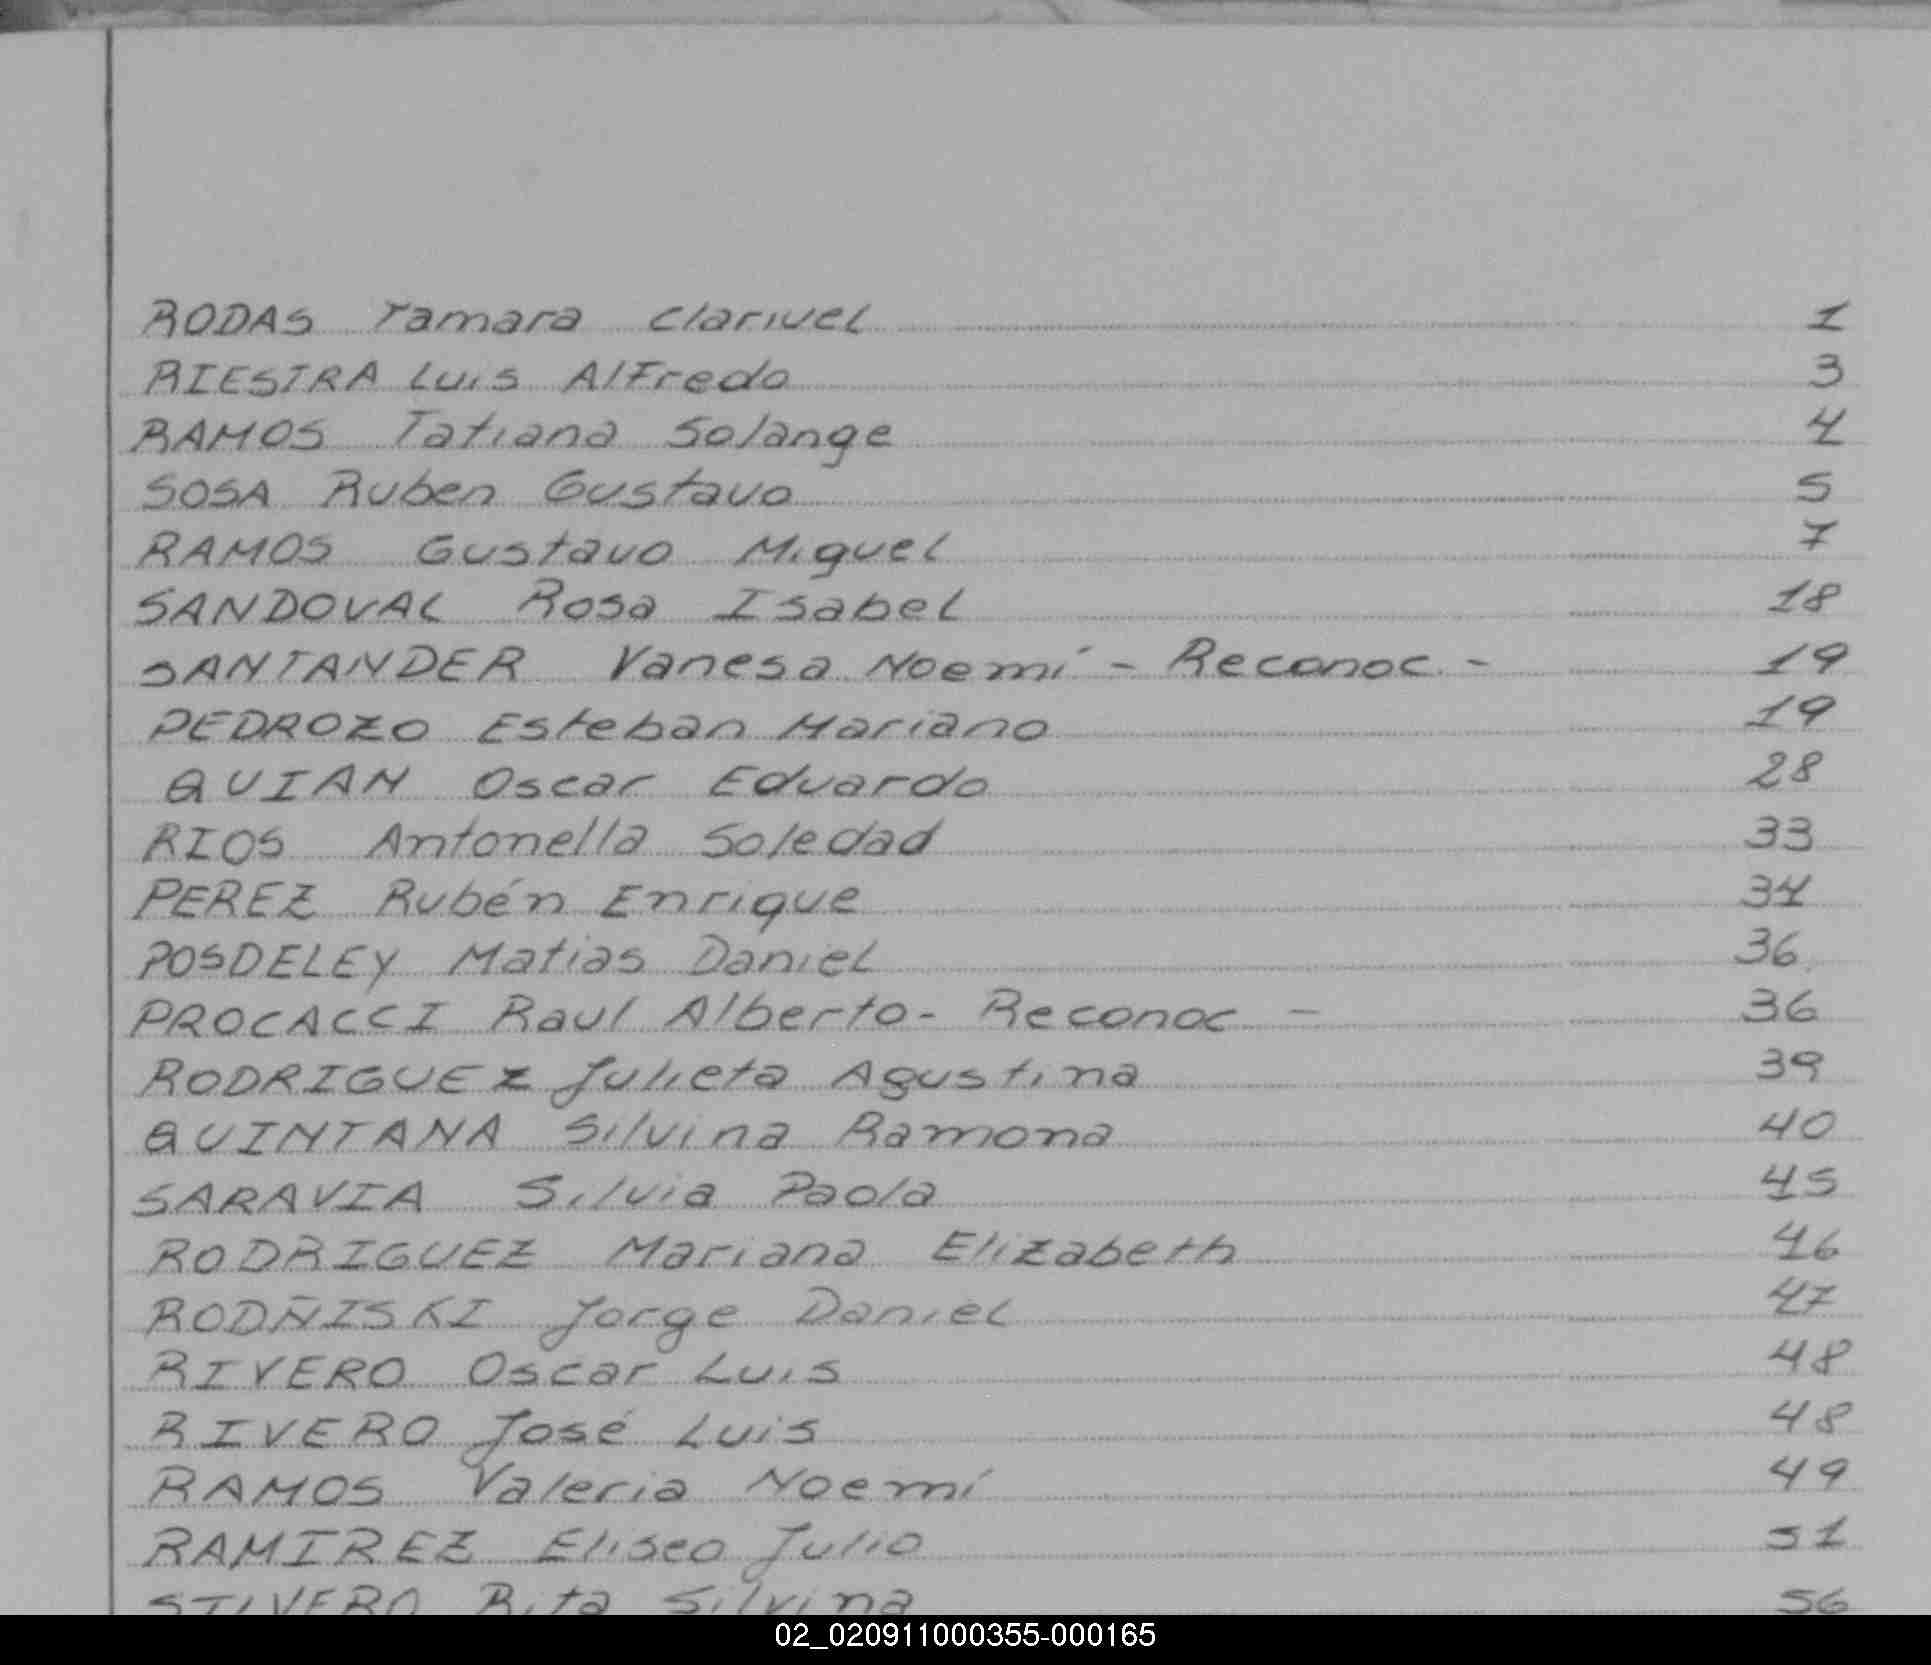 RODAS Tamara Clarivel 1
RIESTRA Luis Alfredo 3
RAMOS Tatiana Solange 4
SOSA Ruben Gustavo 5
RAMOS Gustavo Miguel 7
SANDOVAL Rosa Isabel 18
SANTANDER Vanesa Noemí - Reconoc - 19
PEDROZO Esteban Mariano 19
QUIAN Oscar Eduardo 28
RIOS Antonella Soledad 33
PEREZ Rubén Enrique 34
POSDELEY Matias Daniel 36
PROCACCI Raul Alberto - Reconoc - 36
RODRIGUEZ Julieta Agustina 39
QUINTANA Silvina Ramona 40
SARAVIA Silvia Paola 45
RODRIGUEZ Mariana Elizabeth 46
RODÑISKI Jorge Daniel 47
RIVERO Oscar Luis 48
RIVERO José Luis 48
RAMOS Valeria Noemí 49
RAMIREZ Eliseo Julio 51
Rita Silvina 56
02_020911000355-000165